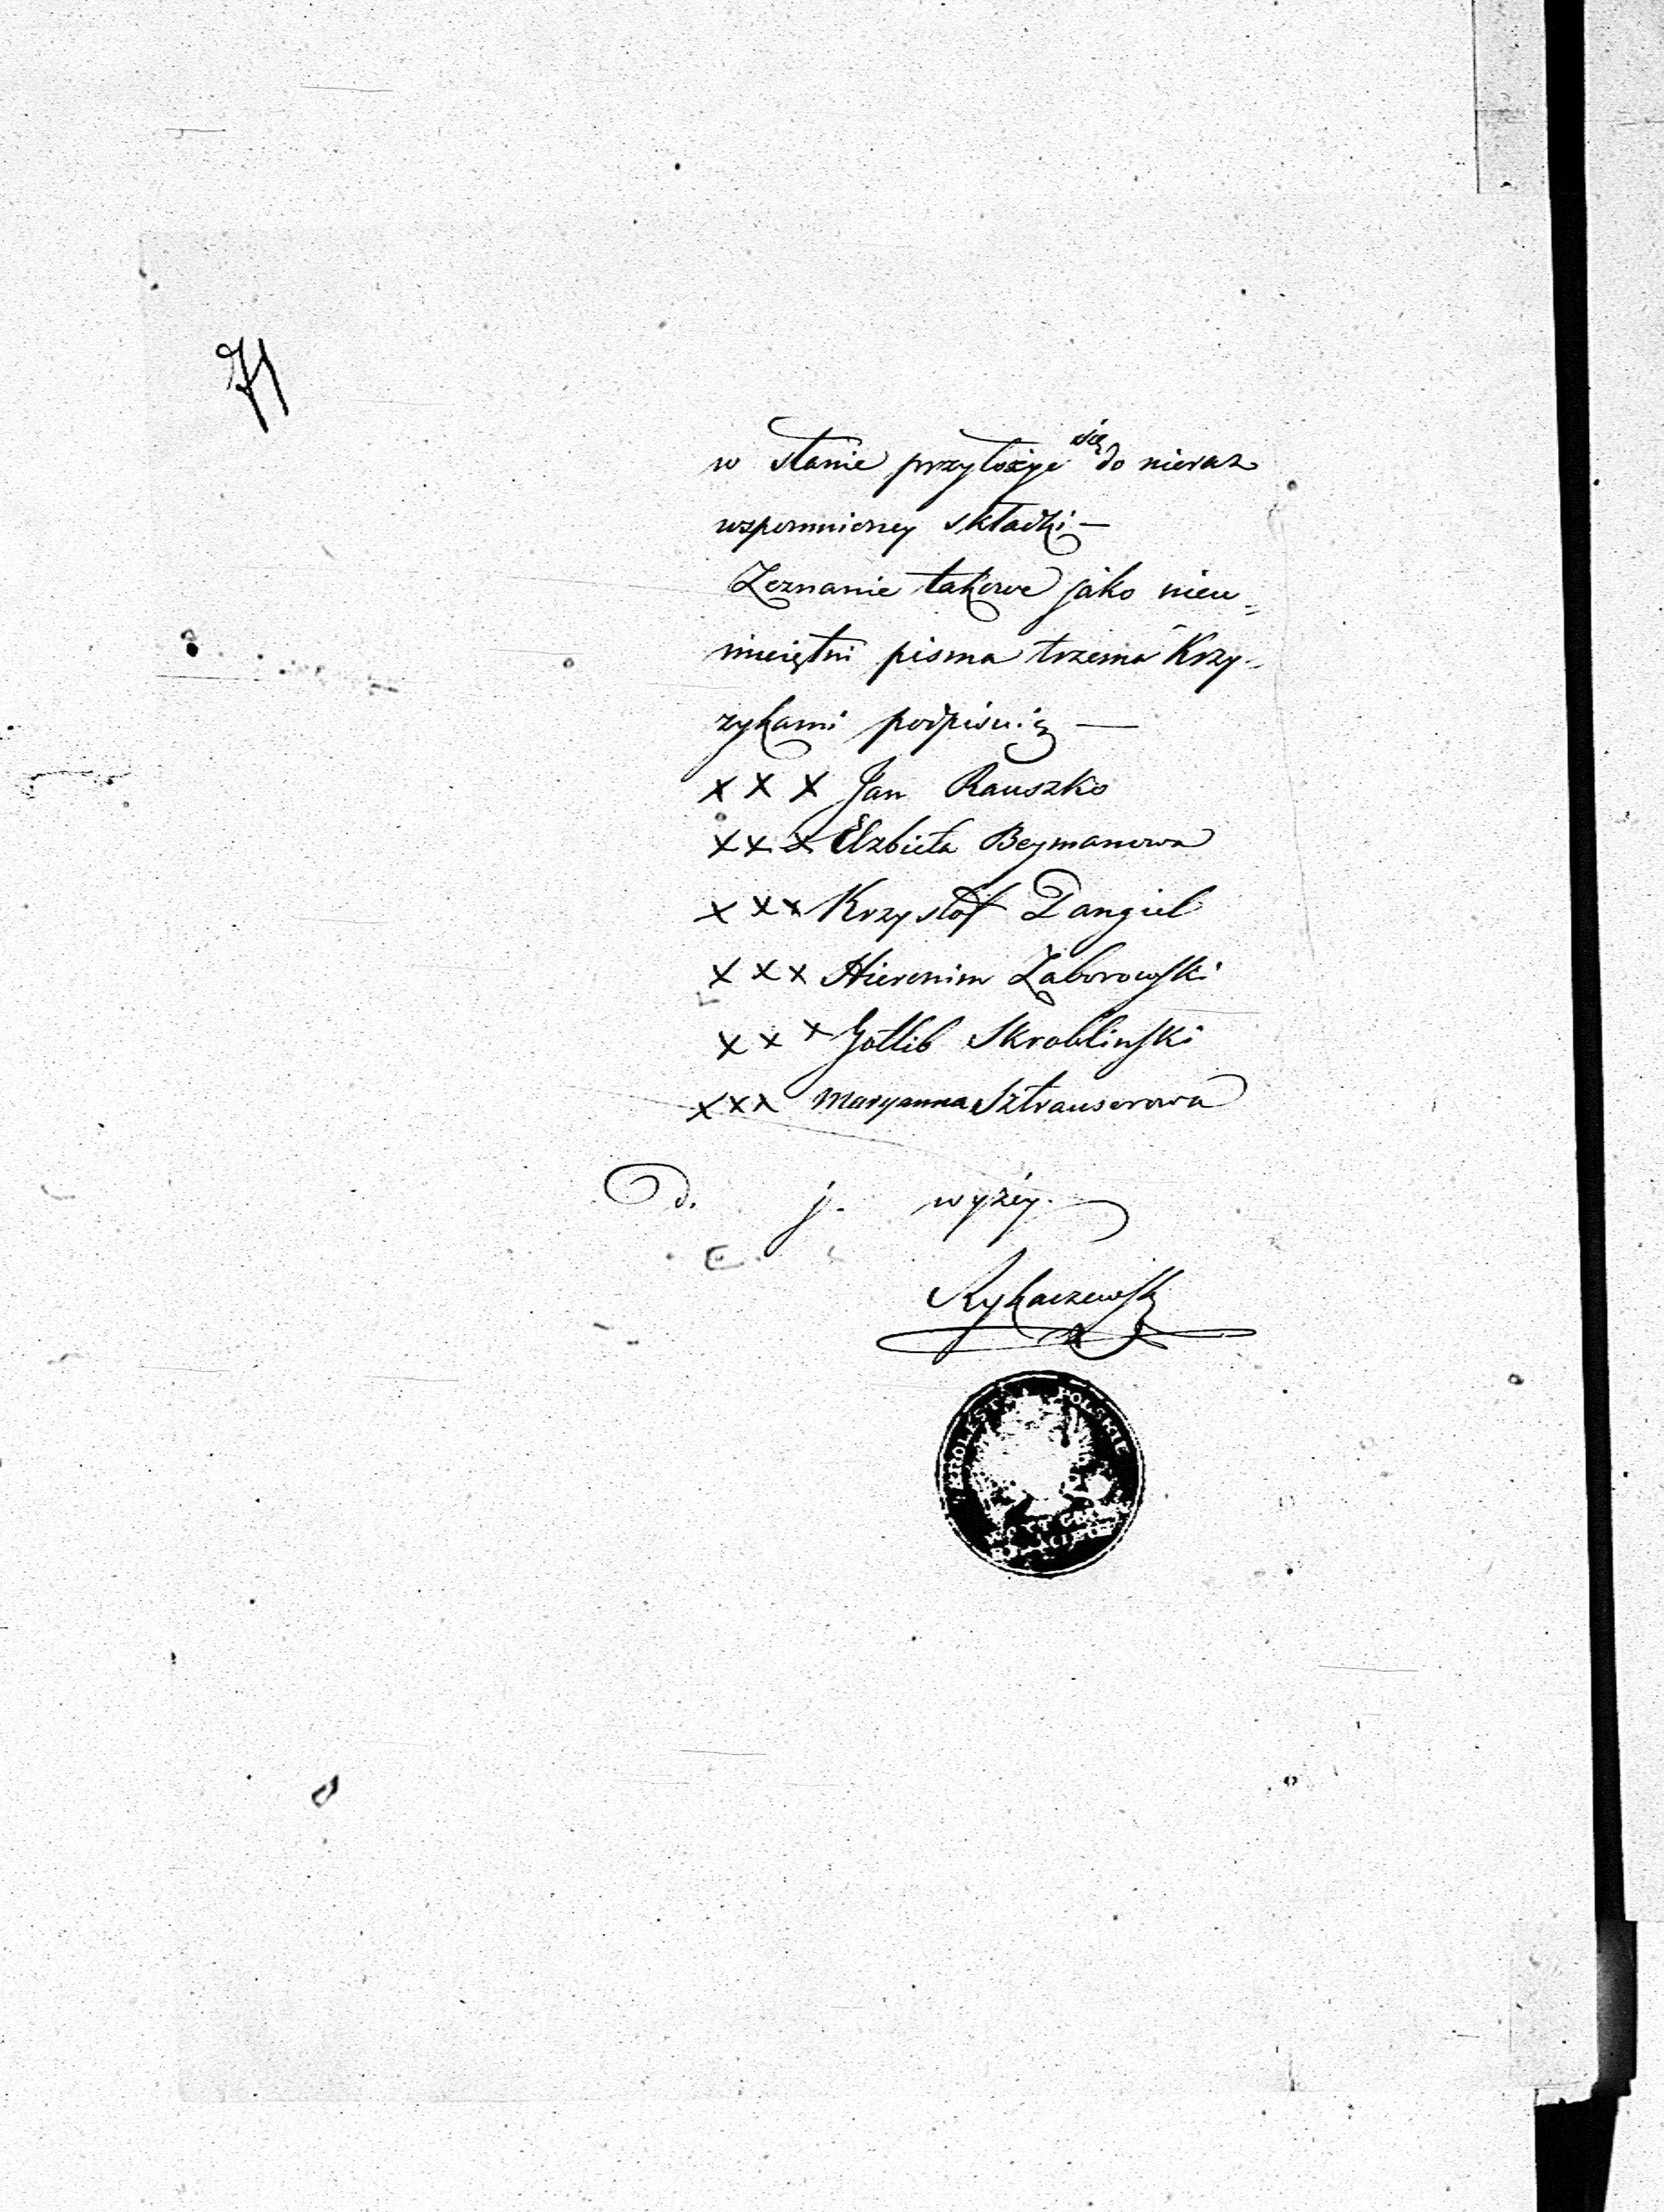 71
w stanie przyłożyć się do nieraz
wspomnioney składki —
Zeznanie takowe jako nieu=
mieiętni pisma trzema Krzy=
zykami podpisuią —
x x x Jan Rauszko
x x x Elzbieta Beymanowa
x x x Krzysztof Dangiel
x x x Hieronim Zaborowski
x x x Gotlib Skroblinski
x x x Maryanna Sztrauserowa
D. j. wyżey.
Rykaczewski
KROLESTWO POLSKIE
WOYT GMINY